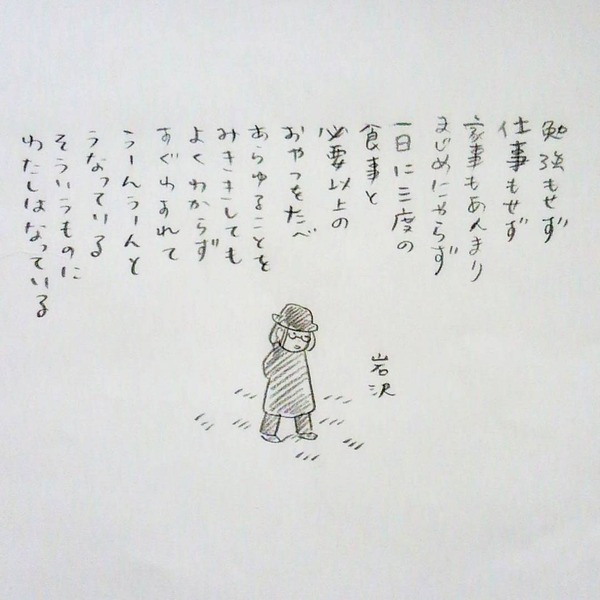 勉強もせず
仕事もせず
家事もあんまり
まじめにやらず
一日に三度の
食事と
必要以上の
おやつをたべ
あらゆることを
みききしても
よくわからず
すぐわすれて
うーんうーんと
うなっている
そういうものに
わたしはなっている
岩沢